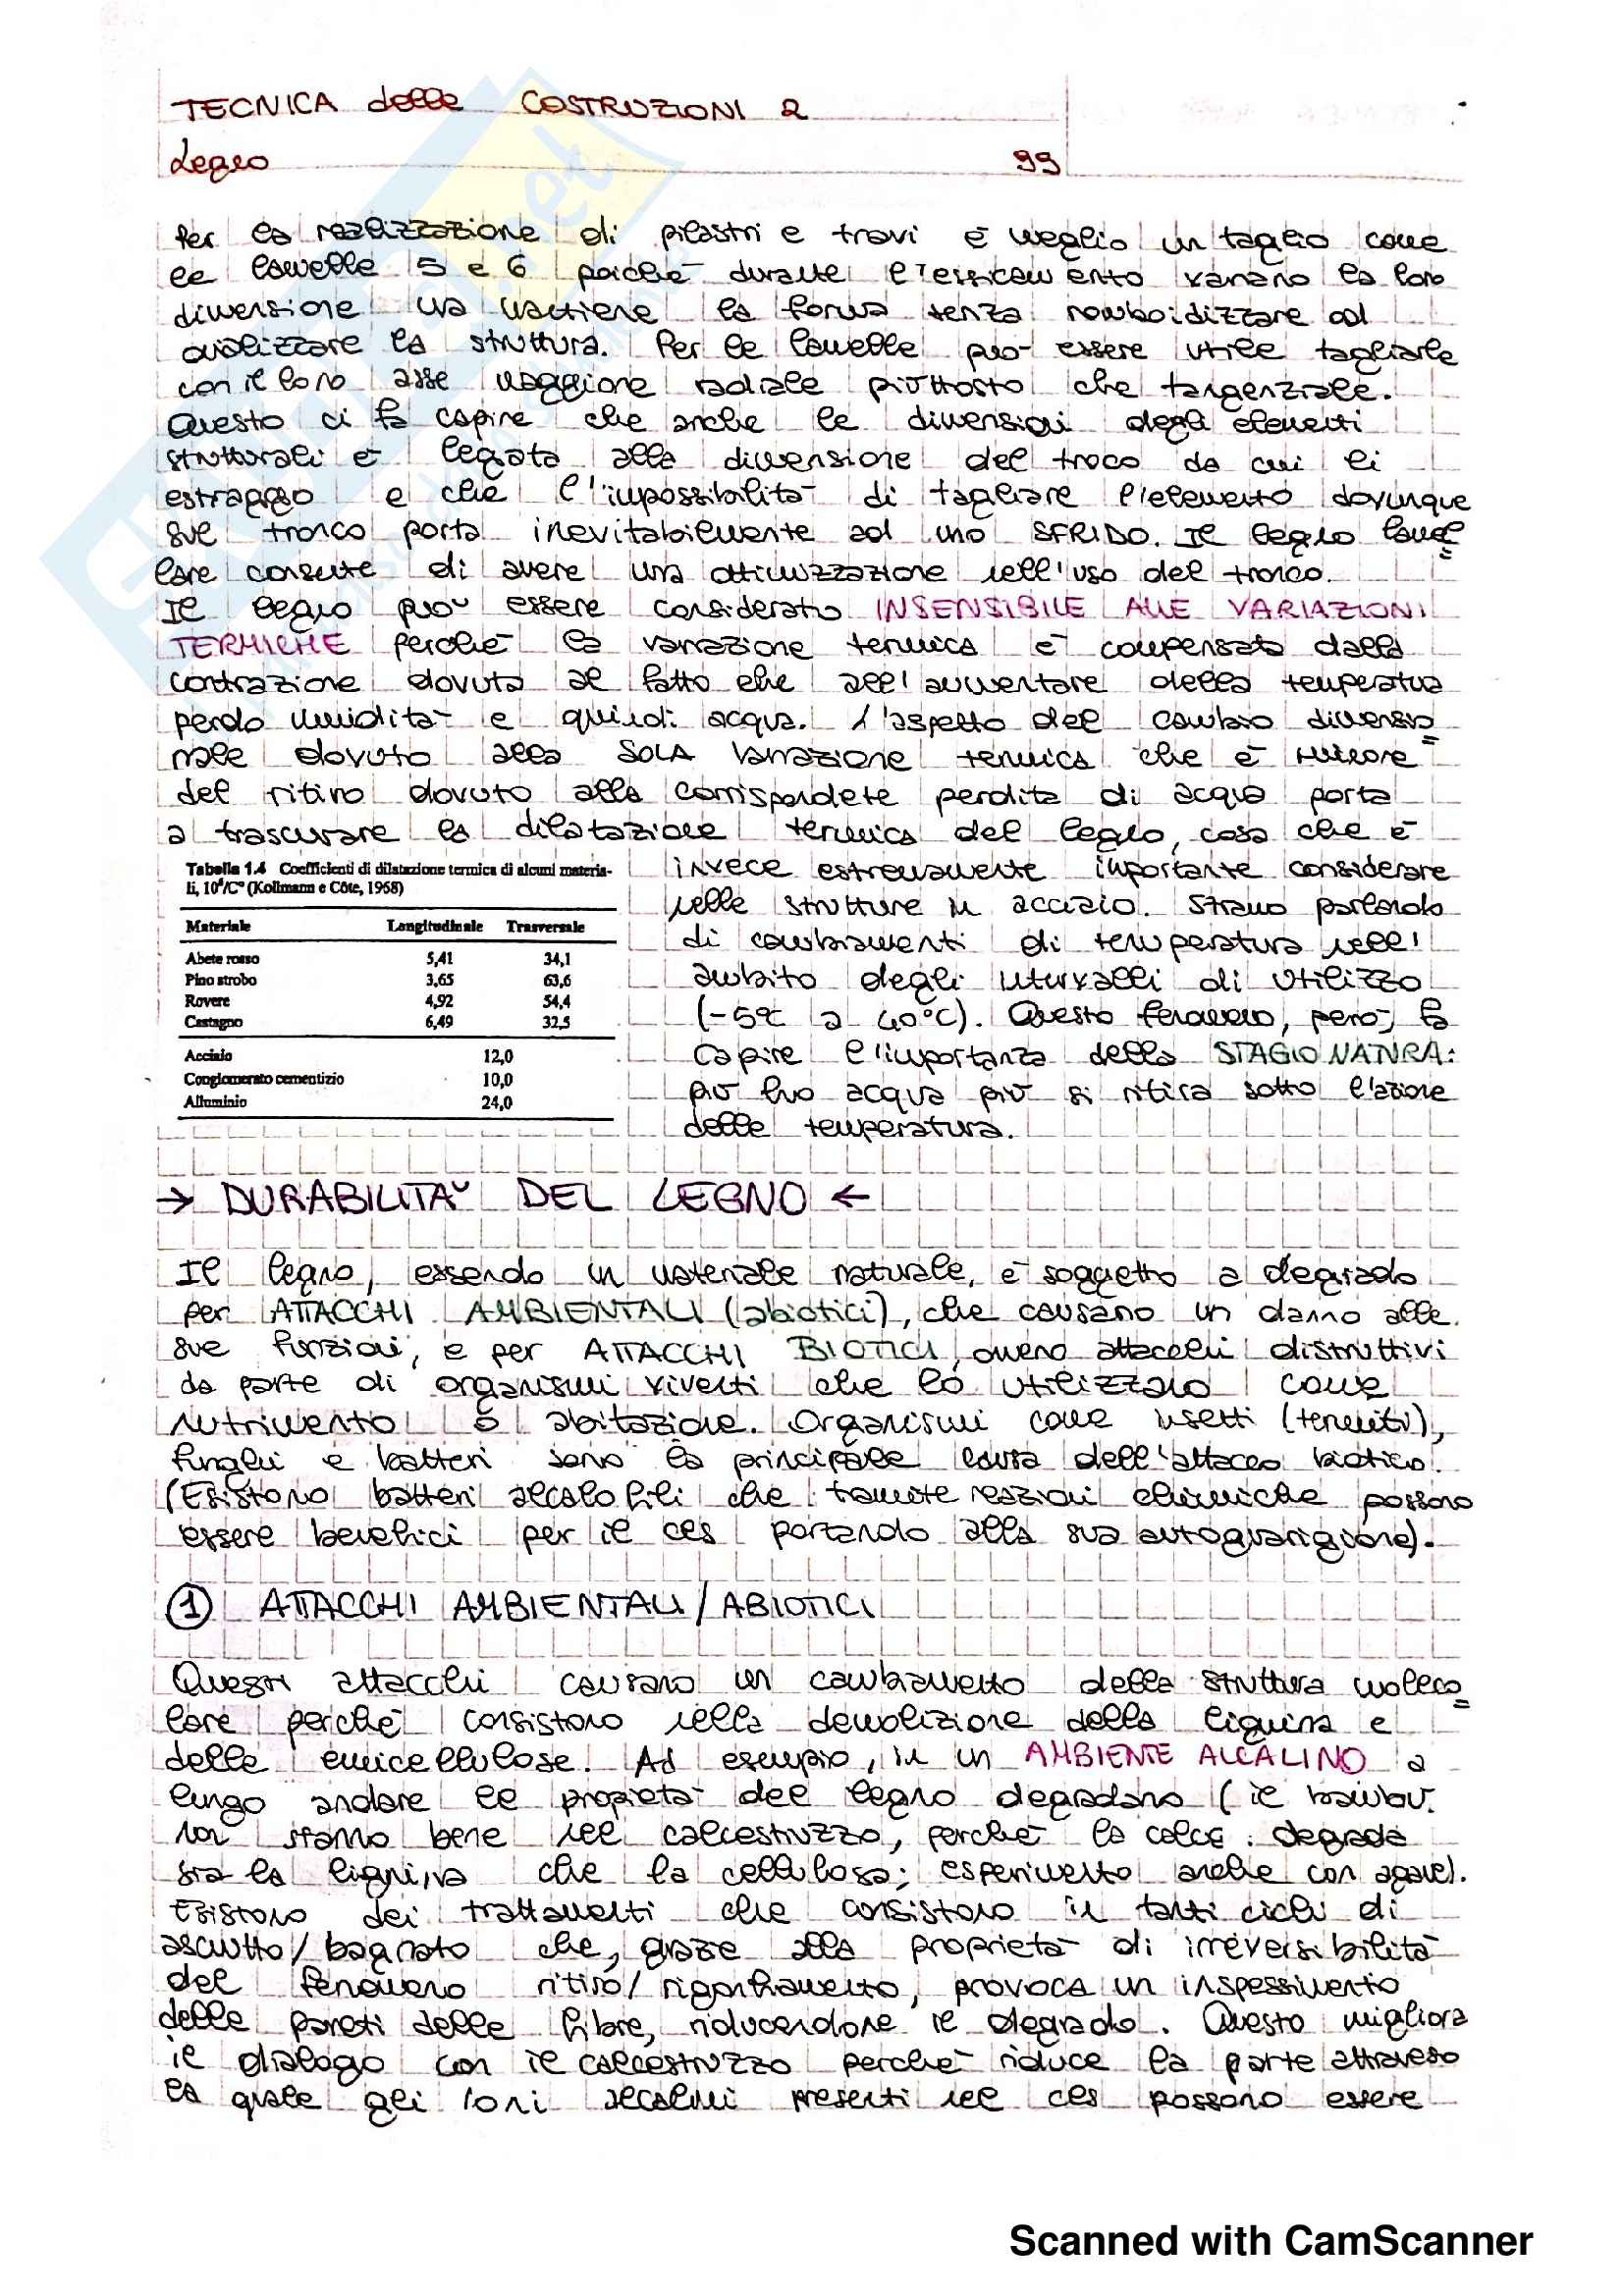 TECNICA delle COSTRUZIONI 2
Legno 99
Per la realizzazione di pilastri e travi è meglio un taglio come
le lamelle 5 e 6 poiché durante l'essiccamento variano la loro
dimensione ma mantiene la forma senza romboidizzare od
ovalizzare la struttura. Per le lamelle può essere utile tagliarle
con il loro asse maggiore radiale piuttosto che tangenziale.
Questo ci fa capire che anche le dimensioni degli elementi
strutturali è legata alla dimensione del troco da cui li
estraggo e che l'impossibilità di tagliare l'elemento dovunque
sul tronco porta inevitabilmente ad uno SFRIDO. Il legno lamel=
lare consente di avere una ottimizzazione nell'uso del tronco.
Il legno può essere considerato INSENSIBILE ALLE VARIAZIONI
TERMICHE perché la variazione termica è compensata dalla
contrazione dovuta al fatto che all'aumentare della temperatura
perdo umidità e quindi acqua. L'aspetto del cambio dimensio=
nale dovuto alla SOLA variazione termica che è minore
del ritiro dovuto alla corrispondete perdita di acqua porta
a trascurare la dilatazione termica del legno, cosa che è
invece estremamente importante considerare
nelle strutture in acciaio. Stiamo parlando
di cambiamenti di temperatura nell'
ambito degli intervalli di utilizzo
(-5°C a 40°C). Questo fenomeno, però, fa
capire l'importanza della STAGIONATURA:
più ho acqua più si ritira sotto l'azione
delle temperatura.
Tabella 1.4 Coefficienti di dilatazione termica di alcuni materia-
li, 10⁶/C° (Kollmann e Côte, 1968)
Materiale Longitudinale Trasversale
Abete rosso 5,41 34,1
Pino strobo 3,65 63,6
Rovere 4,92 54,4
Castagno 6,49 32,5
Acciaio 12,0
Conglomerato cementizio 10,0
Alluminio 24,0
→ DURABILITÀ DEL LEGNO ←
Il legno, essendo un materiale naturale, è soggetto a degrado
per ATTACCHI AMBIENTALI (abiotici), che causano un danno alle
sue funzioni, e per ATTACCHI BIOTICI, ovvero attacchi distruttivi
da parte di organismi viventi che lo utilizzano come
nutrimento o abitazione. Organismi come insetti (termiti),
funghi e batteri sono la principale causa dell'attacco biotico.
(Esistono batteri alcalofili che tramite reazioni chimiche possono
essere benefici per il cls portando alla sua autoguarigione).
1 ATTACCHI AMBIENTALI/ABIOTICI
Questi attacchi causano un cambiamento della struttura moleco=
lare perché consistono nella demolizione della lignina e
delle emicellulose. Ad esempio, in un AMBIENTE ALCALINO a
lungo andare le proprietà del legno degradano (il bambù
non stanno bene nel calcestruzzo, perché la calce degrada
sia la lignina che la cellulosa; esperimento anche con agave).
Esistono dei trattamenti che consistono in tanti cicli di
asciutto/bagnato che, grazie alla proprietà di irreversibilità
del fenomeno ritiro/rigonfiamento, provoca un inspessimento
delle pareti delle fibre, riducendone il degrado. Questo migliora
il dialogo con il calcestruzzo perché riduce la parte attraveso
la quale gli ioni alcalini presenti nel cls possono essere
Scanned with CamScanner